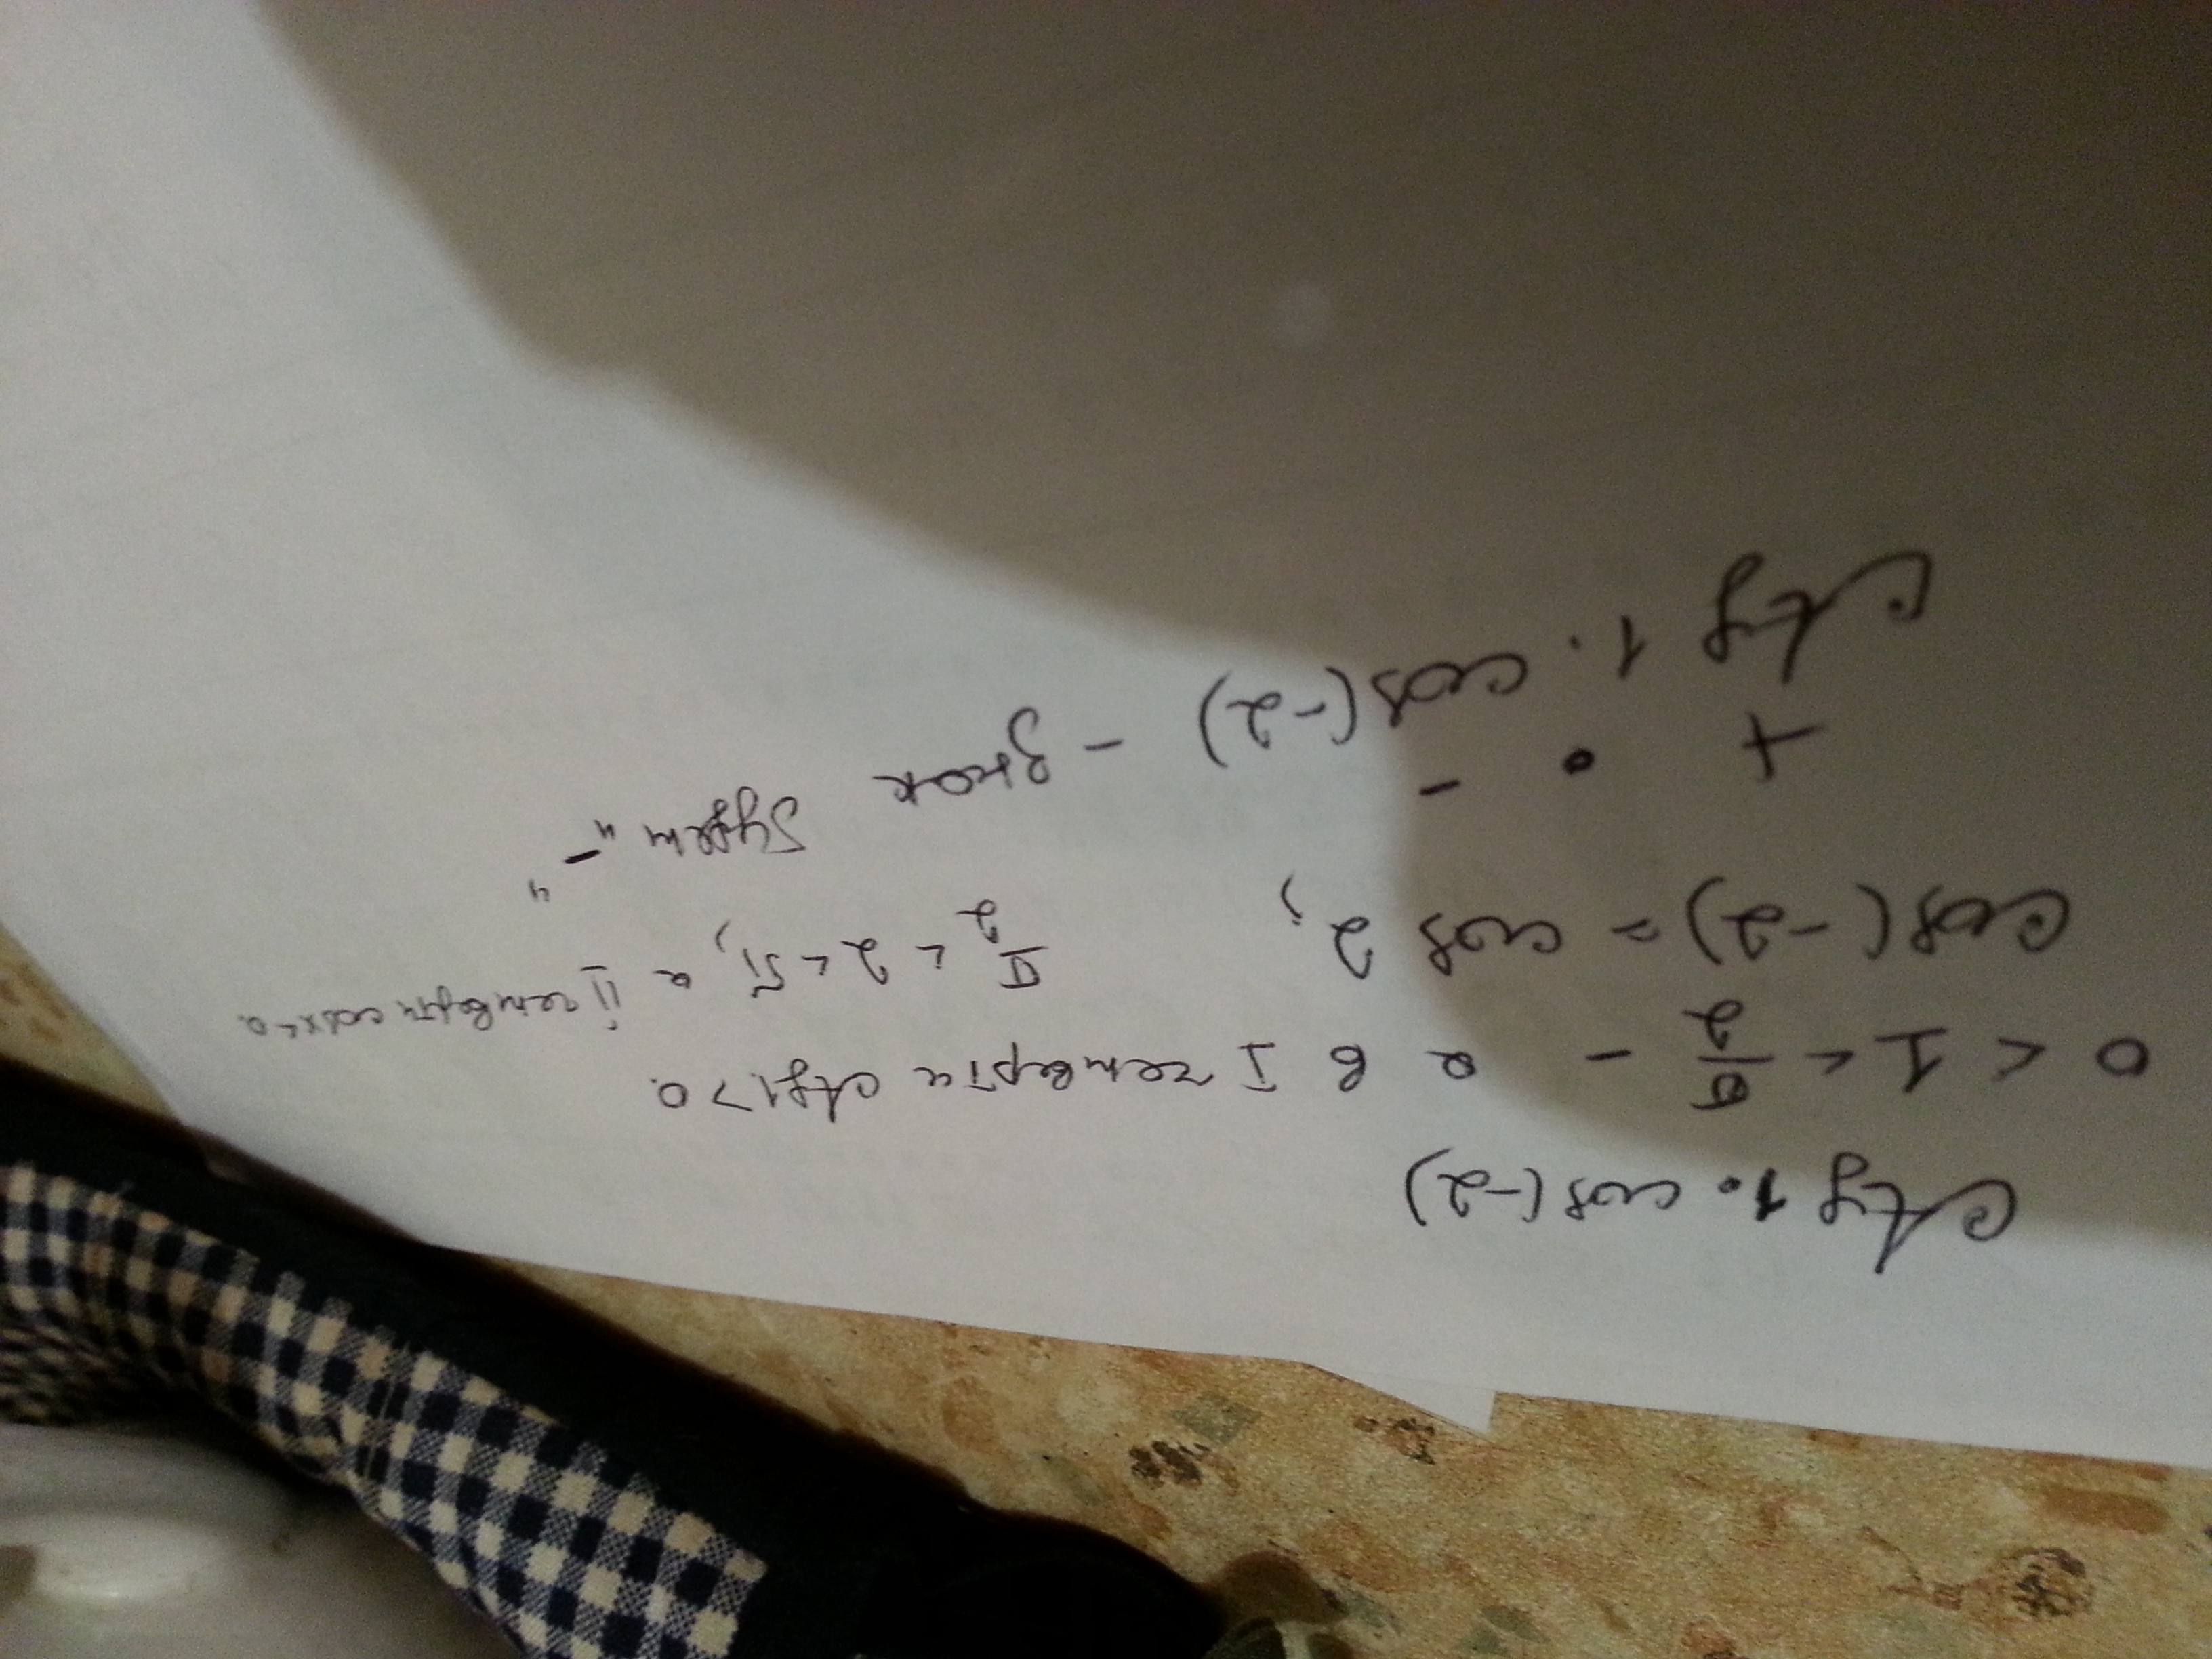 ctg 1 · cos(-2)
0 < 1 < π/2 - а в I четверти ctg 1 > 0.
cos(-2) = cos 2, π/2 < 2 < π, а II четверти cos x < 0.
+ · -
ctg 1 · cos(-2) - знак будет "-"